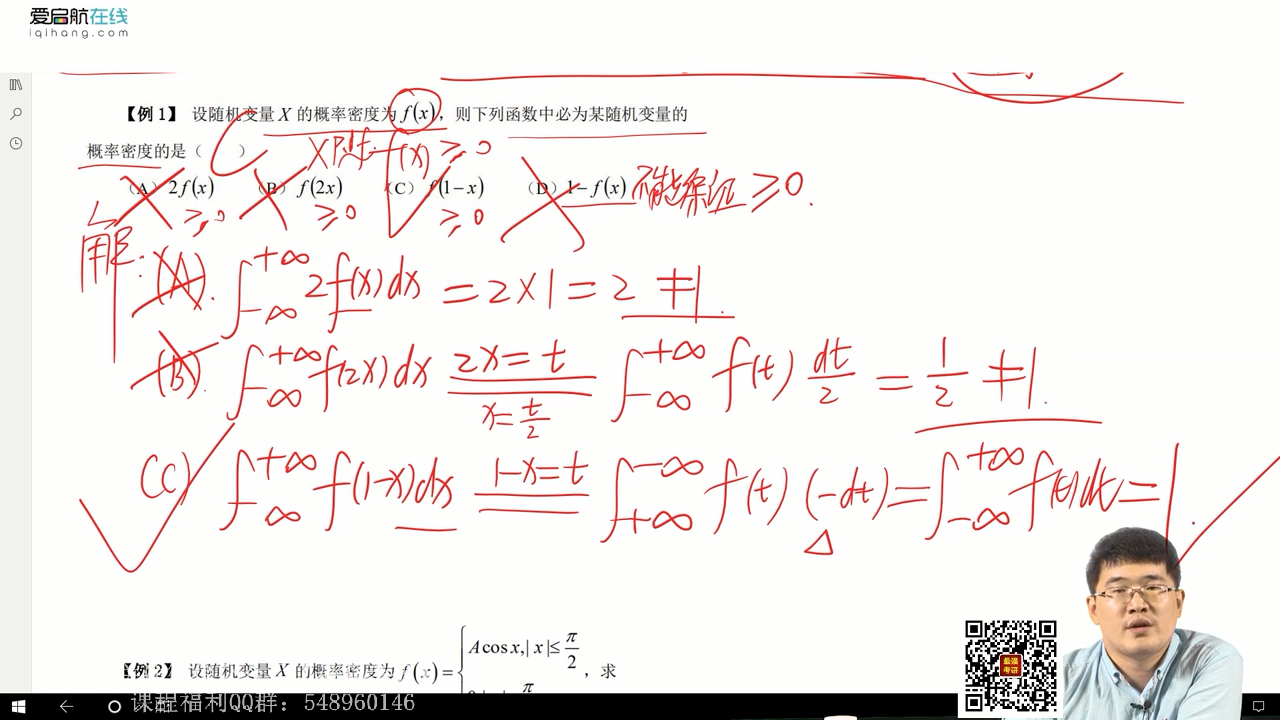 爱启航在线
iqihang.com
【例 1】 设随机变量 X 的概率密度为 f(x)，则下列函数中必为某随机变量的
概率密度的是（ ）
X f(x) ≥ 0
（A） 2f(x) （B） f(2x) （C） f(1−x) （D）1−f(x) 不能保证 ≥0.
≥0 ≥0 ≥0
解:
(A). ∫_{-∞}^{+∞} 2f(x)dx = 2×1 = 2 ≠1.
(B). ∫_{-∞}^{+∞} f(2x)dx 2x=t ∫_{-∞}^{+∞} f(t) dt/2 = 1/2 ≠1.
x=t/2
(C) ∫_{-∞}^{+∞} f(1-x)dx 1-x=t ∫_{+∞}^{-∞} f(t) (-dt) = ∫_{-∞}^{+∞} f(t)dt = 1.
【例 2】 设随机变量 X 的概率密度为 f(x)= { A cos x, |x|≤ π/2 ，求
课程福利QQ群：548960146